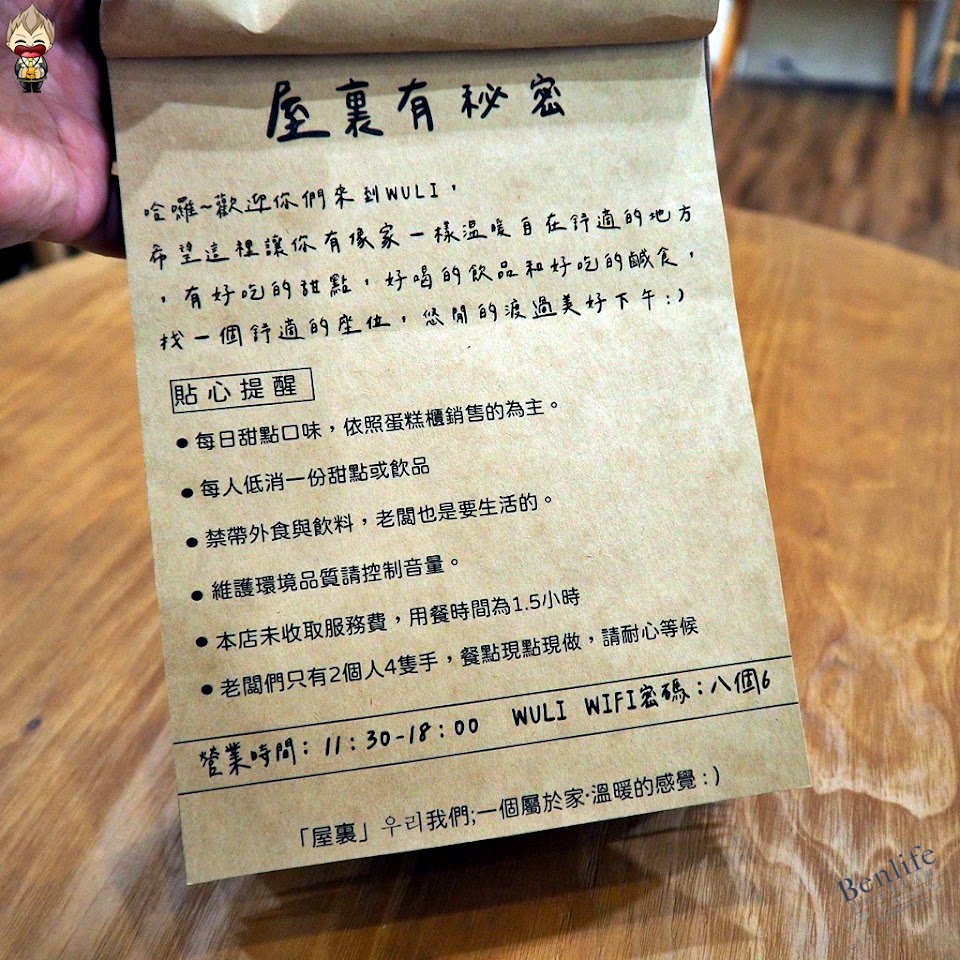 屋裏有秘密
哈囉~歡迎你們來到WULI，
希望這裡讓你有像家一樣溫暖自在舒適的地方
，有好吃的甜點，好喝的飲品和好吃的鹹食，
找一個舒適的座位，悠閒的渡過美好下午:)
貼心提醒
●每日甜點口味，依照蛋糕櫃銷售的為主。
●每人低消一份甜點或飲品
●禁帶外食與飲料，老闆也是要生活的。
●維護環境品質請控制音量。
●本店未收取服務費，用餐時間為1.5小時
●老闆們只有2個人4隻手，餐點現點現做，請耐心等候
營業時間：11：30-18：00 WULI WIFI密碼：八個6
「屋裏」우리我們;一個屬於家·溫暖的感覺:)
Benlife